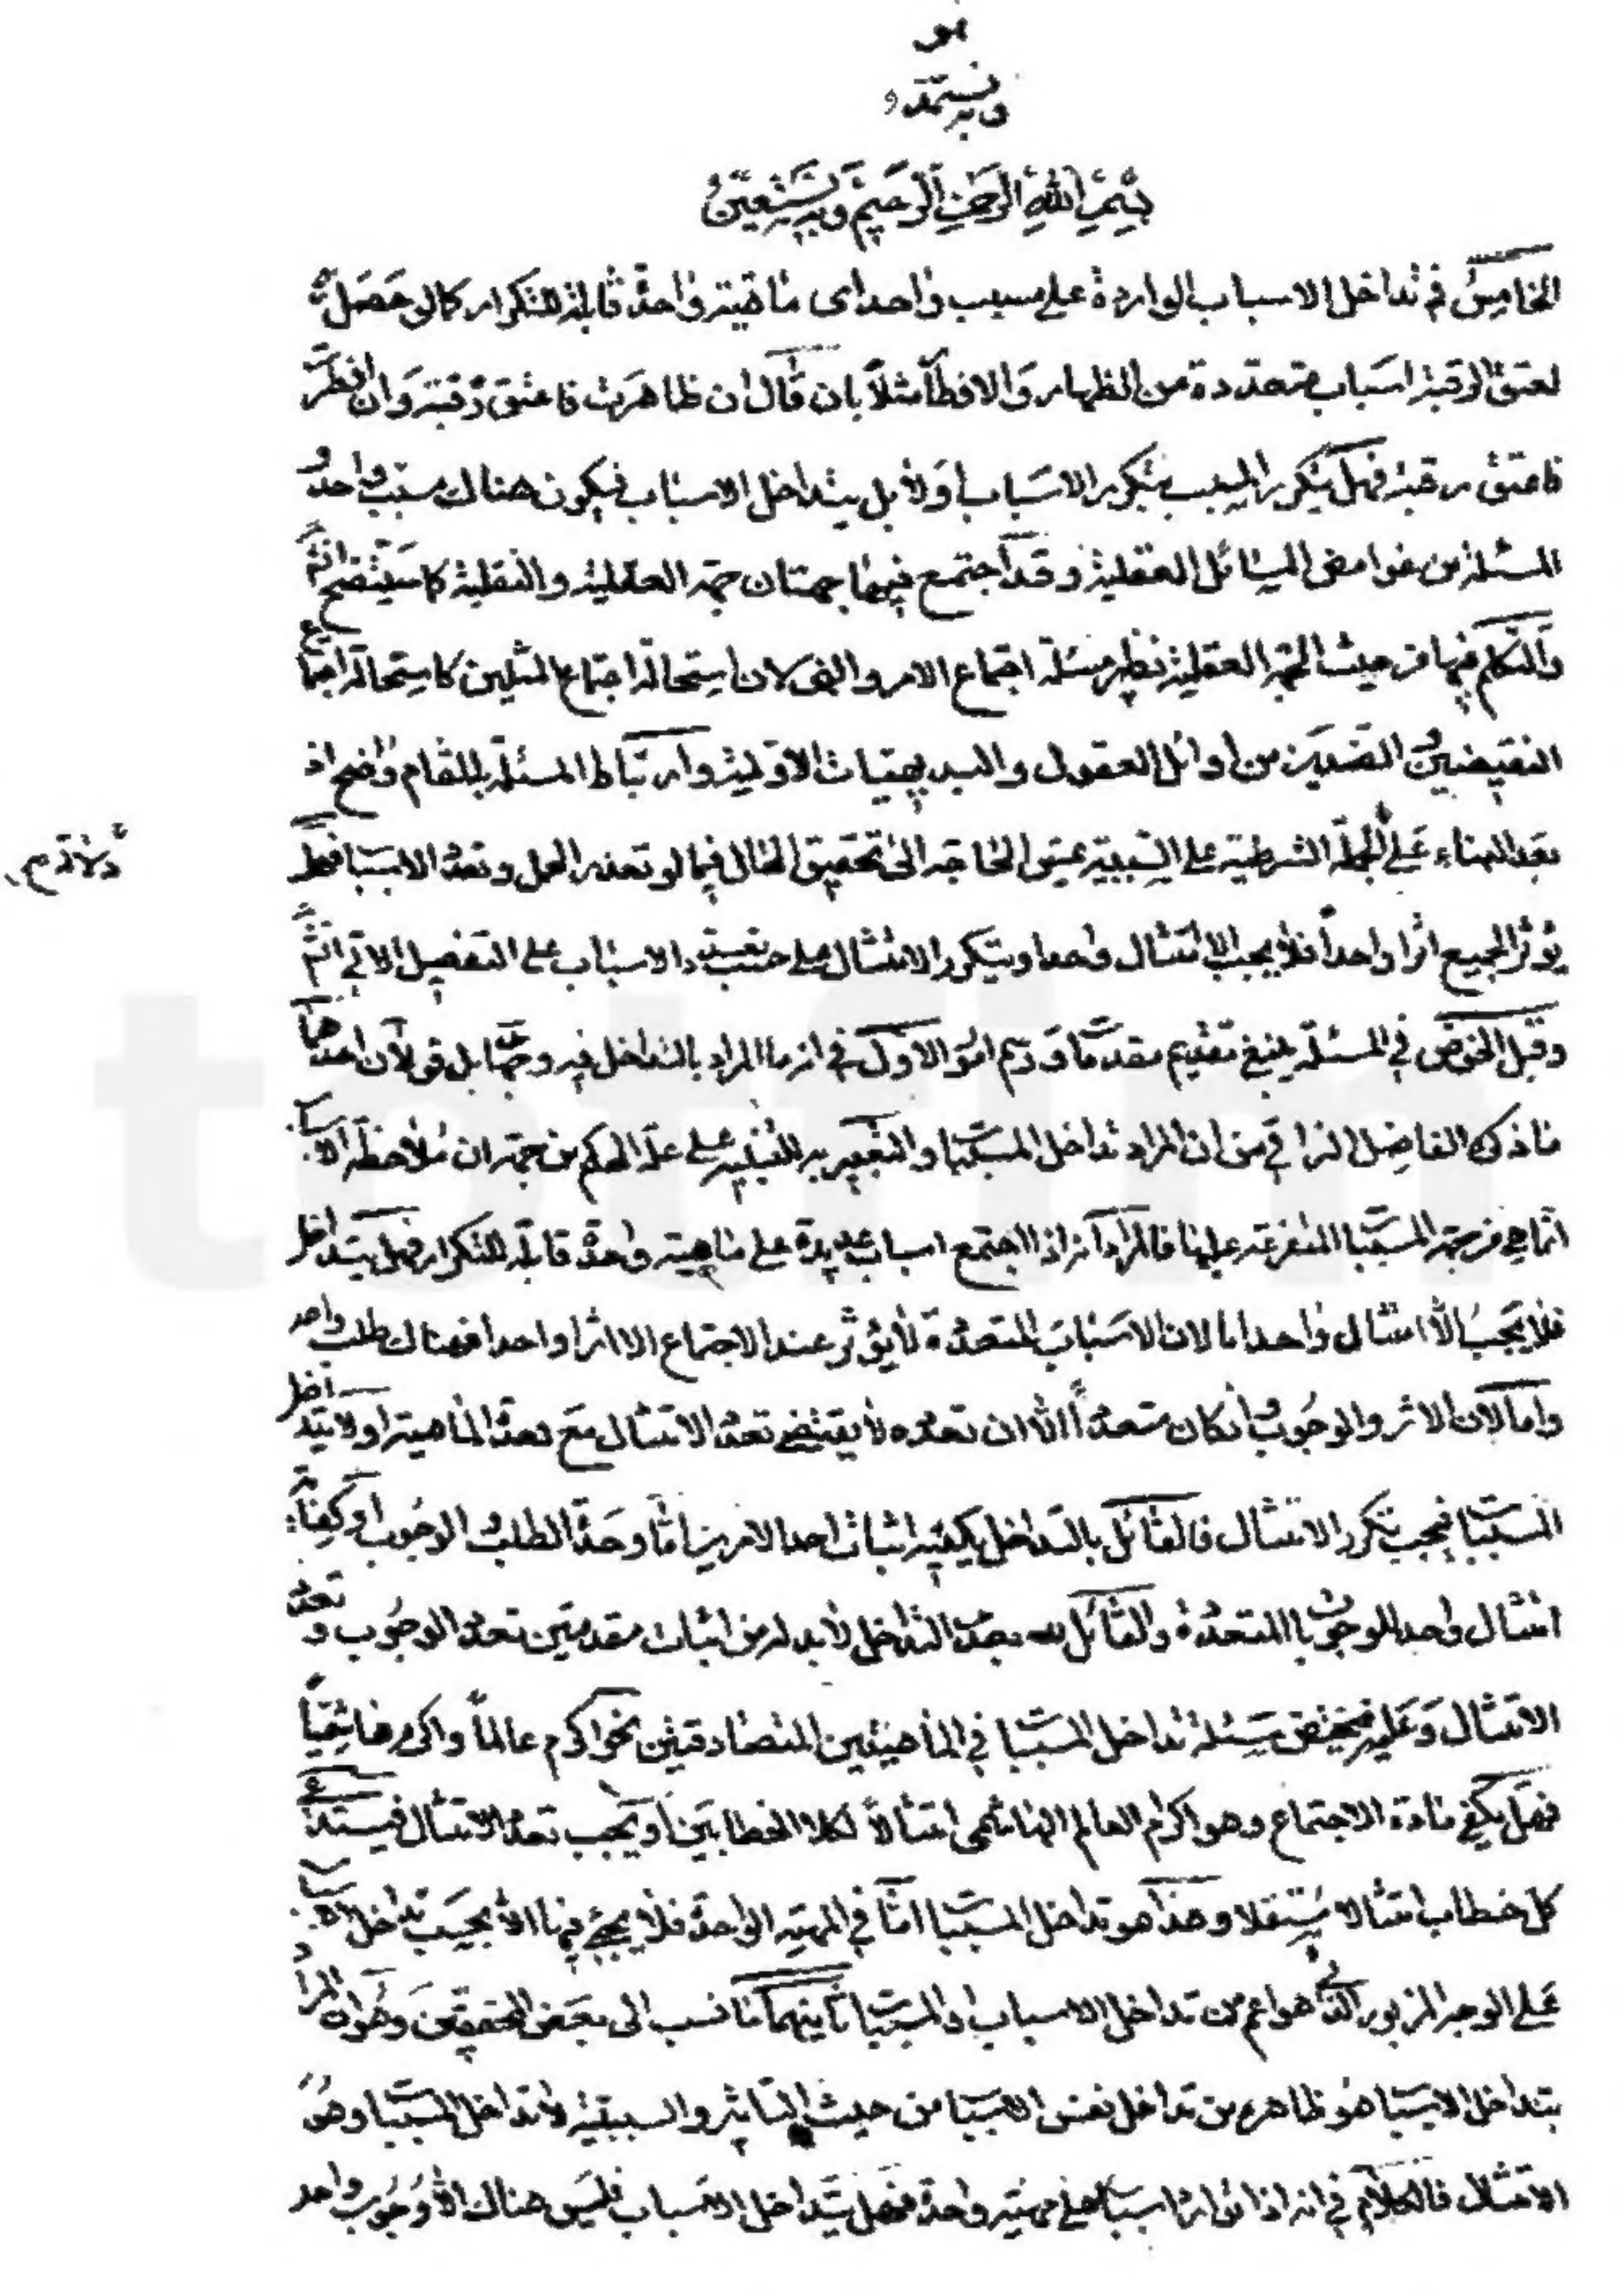 هو
وبه نستمد
بسم الله الرحمن الرحيم وبه نستعين
الخامس في تداخل الاسباب الواردة على سبب واحد اى ماهية واحدة قابلة للتكرار كما لو حصل
لعتق الرقبة اسباب متعددة من الظهار والافطار مثلا بان قال ان ظاهرت فاعتق رقبة وان افطرت
فاعتق رقبة فهل يتكرر المسبب بتكرر الاسباب اولا بل يتداخل الاسباب فيكون هناك مسبب واحد و
المسئلة من غوامض المسائل العقلية وقد اجتمع فيها جهتان جهة العقلية والنقلية كما سيتضح انش
والتكلم فيها من حيث الجهة العقلية نظير مسئلة اجتماع الامر والنهى لان استحالة اجتماع المثلين كاستحالة اجتماع
النقيضين الضدين من اوائل العقول والبديهيات الاولية وارتباط المسئلة بالمقام واضح اذ
بعد البناء على الجملة الشرطية على السببية عس الحاجة الى تحقيق الحال فيما لو تعذر العمل وتعدد الاسباب فهل
دلالة م
يؤثر الجميع اثرا واحدا فلا يجب الا امتثال واحد او يتكرر الامتثال على حسب تعدد الاسباب على التفصيل الاتي انش
وقبل الخوض في المسئلة ينبغي تقديم مقدمة ورسم امور الاول في انه ما المراد بالتداخل فيه وجهان بل قولان احدهما
ما ذكره الفاضل النراقي من ان المراد تداخل المسببات والتعبير به للتنبيه على علة الحكم من جهة ان ملاحظة الاسباب
انما هى من جهة المسببات المتفرعة عليها فالمراد انه اذا اجتمع اسباب عديدة على ماهية واحدة قابلة للتكرار فهل يتداخل
فلا يجب الا امتثال واحد اما لان الاسباب المتعددة لا يؤثر عند الاجتماع الا اثرا واحدا فهناك طلب واحد
واما لان الاثر والوجوب وان كان متعددا الا ان تعدده لا يقتضى تعدد الامتثال مع تعدد الماهية اولا يتداخل
المسببات فيجب تكرر الامتثال فالقائل بالتداخل يكفيه اثبات احد الامرين اما وحدة الطلب والوجوب او كفاية
امتثال واحد للوجوبات المتعددة والقائل بعدم التداخل لابد له من اثبات مقدمتين تعدد الوجوب وتعدد
الامتثال وعليه فيختص مسئلة تداخل المسببات في الماهيتين المتصادقتين نحو اكرم عالما واكرم هاشميا
فهل يكفي مادة الاجتماع وهو اكرام العالم الهاشمى امتثالا لكلا الخطابين او يجب تعدد الامتثال فيستدعى
كل خطاب امتثالا مستقلا وهذا هو تداخل المسببات اما في المهية الواحدة فلا يجئ فيها الا بحسب تداخل الاسباب
على الوجه المزبور الذى هو اعم من تداخل الاسباب والمسببات ثانيهما ما نسب الى بعض المحققين وهو ان المراد
بتداخل الاسباب هو ظاهره من تداخل نفس الاسباب من حيث التاثير والسببية لا تداخل المسببات وهو
الامتثال فالكلام في انه اذا توارد اسباب على مهية واحدة فهل يتداخل الاسباب فليس هناك الا وجوب واحد